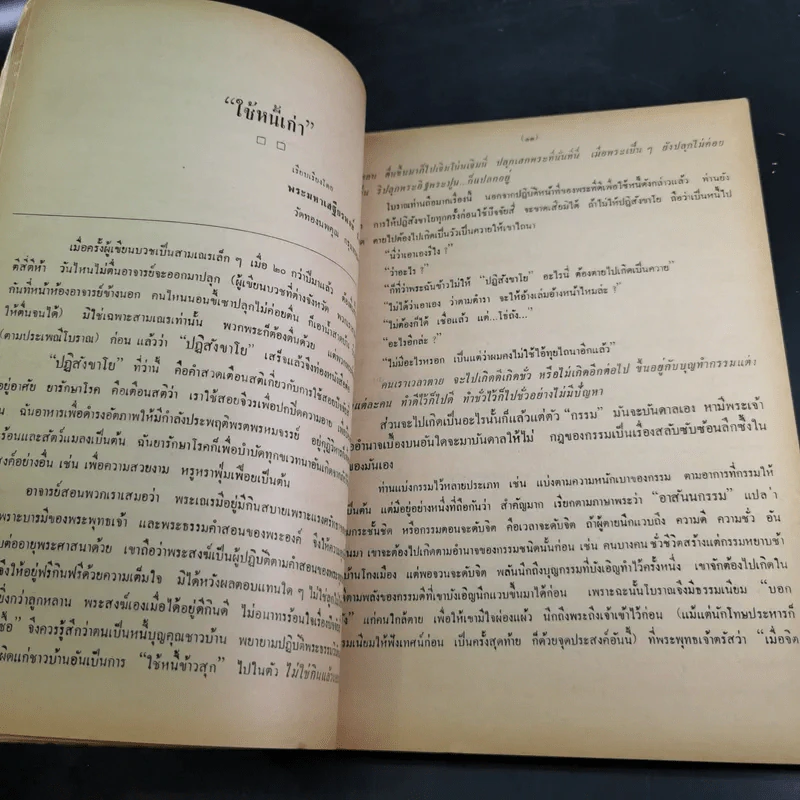 “ใช้หนี้เก่า”
เรียบเรียงโดย
พระมหาเสฐียรพงษ์
วัดทองนพคุณ
เมื่อครั้งผู้เขียนบวชเป็นสามเณรเล็ก ๆ เมื่อ ๒๐ กว่าปีมาแล้ว
ตีสี่ตีห้า วันไหนไม่ตื่นอาจารย์จะออกมาปลุก (ผู้เขียนบวชที่ต่างจังหวัด
กันที่หน้าห้องอาจารย์ข้างนอก คนไหนนอนขี้เซาปลุกไม่ค่อยตื่น ก็เอาน้ำสาด
ให้ตื่นจนได้) มิใช่เฉพาะสามเณรเท่านั้น พวกพระก็ต้องตื่นด้วย
(ตามประเพณีโบราณ) ก่อน แล้วว่า “ปฏิสังขาโย” เสร็จแล้วจึงท่องหนังสือ
“ปฏิสังขาโย” ที่ว่านี้ คือคำสวดเตือนสติเกี่ยวกับการใช้สอยปัจจัย
อยู่อาศัย ยารักษาโรค คือเตือนสติว่า เราใช้สอยจีวรเพื่อปกปิดความอาย
ฉันอาหารเพื่อดำรงอัตภาพให้มีกำลังประพฤติพรตพรหมจรรย์
ร้อนและสัตว์แมลงเป็นต้น ฉันยารักษาโรคก็เพื่อบำบัดทุกขเวทนาอันเกิด
งค์อย่างอื่น เช่น เพื่อความสวยงาม หรูหราฟุ่มเฟือยเป็นต้น
อาจารย์สอนพวกเราเสมอว่า พระเณรมีอยู่มีกินสบายเพราะแรงศรัทธา
เพราะบารมีของพระพุทธเจ้า และพระธรรมคำสอนของพระองค์ จึงให้ความ
บต่ออายุพระศาสนาด้วย เขาถือว่าพระสงฆ์เป็นผู้ปฏิบัติตามคำสอนของ
จึงให้อยู่ฟรีกินฟรีด้วยความเต็มใจ มิได้หวังผลตอบแทนใด ๆ
ยิ่งกว่าลูกหลาน พระสงฆ์เองเมื่อได้อยู่ดีกินดี ไม่อนาทรร้อนใจเรื่อง
ซื้อ” จึงควรรู้สึกว่าตนเป็นหนี้บุญคุณชาวบ้าน พยายามปฏิบัติ
ผิดแก่ชาวบ้านอันเป็นการ “ใช้หนี้ข้าวสุก” ไปในตัว ไม่ใช่กินแล้ว
(๑๑)
ตื่นขึ้นมาก็ไปเดินโน่นเดินนี่ ปลุกเสกพระที่นั่นที่นี่ เมื่อพระเป็น ๆ ยังปลุกไม่ค่อย
รีปลุกพระอิฐพระปูน...ก็แปลกอยู่
โบราณท่านถือมากเรื่องนี้ นอกจากปฏิบัติหน้าที่ของพระที่ดีเพื่อใช้หนี้ดังกล่าวแล้ว ท่านยัง
การให้ปฏิสังขาโยทุกครั้งก่อนใช้ปัจจัยสี่ จะขาดเสียมิได้ ถ้าไม่ให้ปฏิสังขาโย ถือว่าเป็นหนี้ไป
ตายไปต้องไปเกิดเป็นวัวเป็นควายให้เขาไถนา
“นี่ว่าเอาเองรึไง ?”
“ว่าอะไร ?”
“ก็ที่ว่าพระฉันข้าวไม่ให้ “ปฏิสังขาโย” อะไรนี่ ต้องตายไปเกิดเป็นควาย”
“ไม่ได้ว่าเอาเอง ว่าตามตำรา จะให้อ้างเล่มอ้างหน้าไหมล่ะ ?”
“ไม่ต้องก็ได้ เชื่อแล้ว แต่...ใช่ถัง...”
“อะไรอีกล่ะ ?”
“ไม่มีอะไรหรอก เป็นแต่ว่าผมคงไม่ใช้ไอ้ทุยไถนาอีกแล้ว”
คนเราเวลาตาย จะไปเกิดดีเกิดชั่ว หรือไม่เกิดอีกต่อไป ขึ้นอยู่กับบุญทำกรรมแต่ง
แต่ละคน ทำดีไว้ก็ไปดี ทำชั่วไว้ก็ไปชั่วอย่างไม่มีปัญหา
ส่วนจะไปเกิดเป็นอะไรนั้นก็แล้วแต่ตัว “กรรม” มันจะบันดาลเอง หามีพระเจ้า
อำนาจเบื้องบนอันใดจะมาบันดาลให้ไม่ กฎของกรรมเป็นเรื่องสลับซับซ้อนลึกซึ้งใน
องมันเอง
ท่านแบ่งกรรมไว้หลายประเภท เช่น แบ่งตามความหนักเบาของกรรม ตามอาการที่กรรมให้
เป็นต้น แต่มีอยู่อย่างหนึ่งที่ถือกันว่า สำคัญมาก เรียกตามภาษาพระว่า “อาสันนกรรม” แปลว่า
กระชั้นชิด หรือกรรมตอนจะดับจิต คือเวลาจะดับจิต ถ้าผู้ตายนึกแวบถึง ความดี ความชั่ว อัน
นมา เขาจะต้องไปเกิดตามอำนาจของกรรมชนิดนั้นก่อน เช่น คนบางคน ชั่วชีวิตสร้างแต่กรรมหยาบช้า
บ้านโกงเมือง แต่พอจวนจะดับจิต พลันนึกถึงบุญกรรมที่บังเอิญทำไว้ครั้งหนึ่ง เขาจักต้องไปเกิดใน
ตามพลังของกรรมดีที่เขาบังเอิญนึกแวบขึ้นมาได้ก่อน เพราะฉะนั้นโบราณจึงมีธรรมเนียม “บอก
แก่คนใกล้ตาย เพื่อให้เขามีใจผ่องแผ้ว นึกถึงพระถึงเจ้าเข้าไว้ก่อน (แม้แต่นักโทษประหารก็
รรมเนียมให้ฟังเทศน์ก่อน เป็นครั้งสุดท้าย ก็ด้วยจุดประสงค์อันนี้) ที่พระพุทธเจ้าตรัสว่า “เมื่อจิต